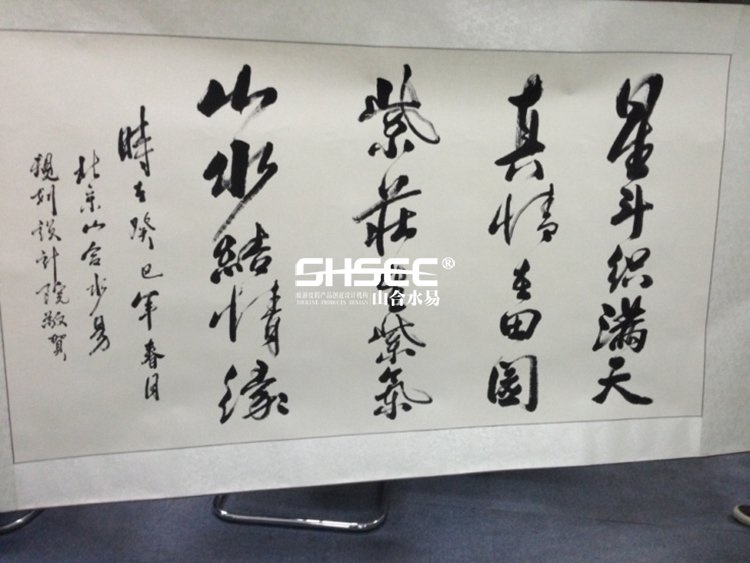 星斗织满天
真情在田園
紫莊紫氣
山水結情緣
時在癸巳年春月
北京山合水易
規划設計院敬贺
SHSEE®
山合水易